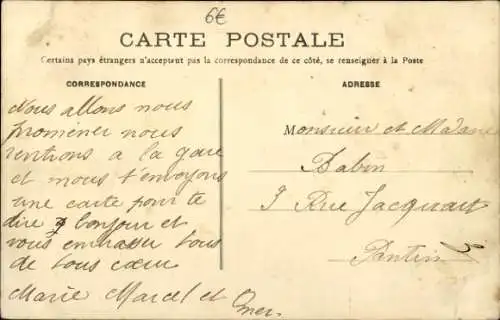 6€
CARTE POSTALE
Certains pays étrangers n'acceptent pas la correspondance de ce côté, se renseigner à la Poste
CORRESPONDANCE
ADRESSE
Nous allons nous
promener nous
rentrons a la gare
et nous t'envoyons
une carte pour te
dire bonjour et
vous embrasser tous
de tous cœur
Marie Marcel et Omer
Monsieur et Madame
Babin
9 Rue Jacquart
Pantin